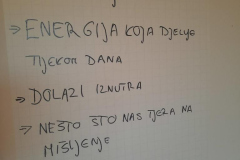 ⇒ ENERGIJA KOJA DJELUJE
TIJEKOM DANA
⇒ DOLAZI IZNUTRA
⇒ NEŠTO ŠTO NAS TJERA NA
MIŠLJENJE